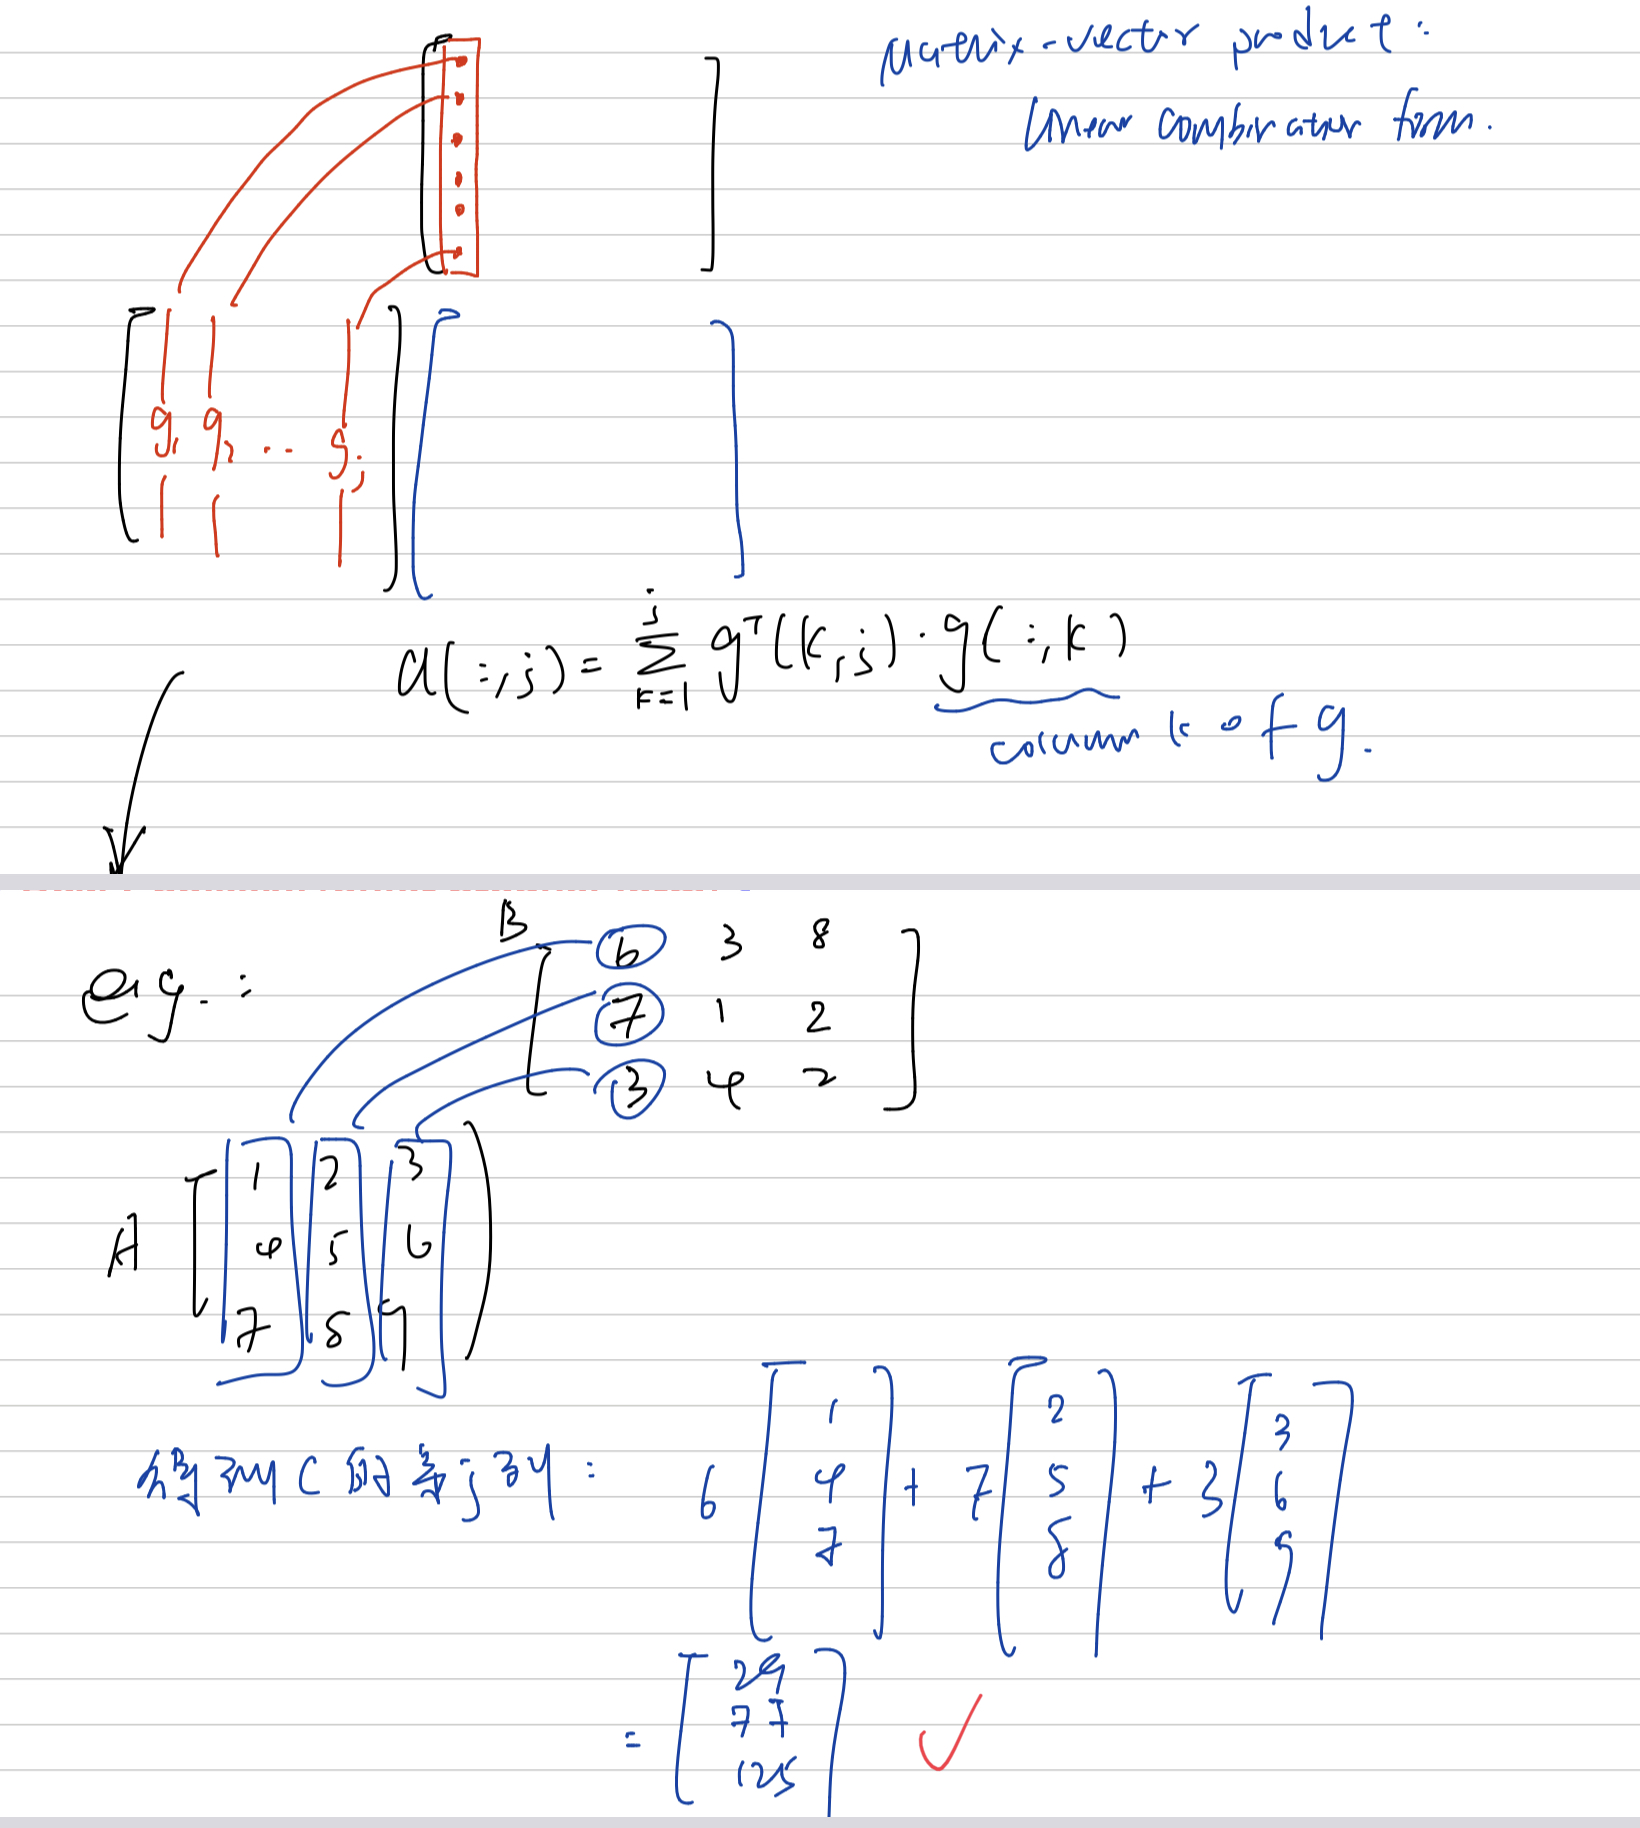 Matrix-vector product:
linear combination form.
g₁ g₂ ... gⱼ
a(:,j) = Σ_{k=1}^{j} gᵀ(k,j) · g(:,k)
column k of g.
e.g.:
B
6 3 8
7 1 2
3 4 2
A
1 2 3
4 5 6
7 8 9
得到 C 的第 j 列: 6 [1 4 7] + 7 [2 5 8] + 3 [3 6 9]
= [29 77 125] ✓